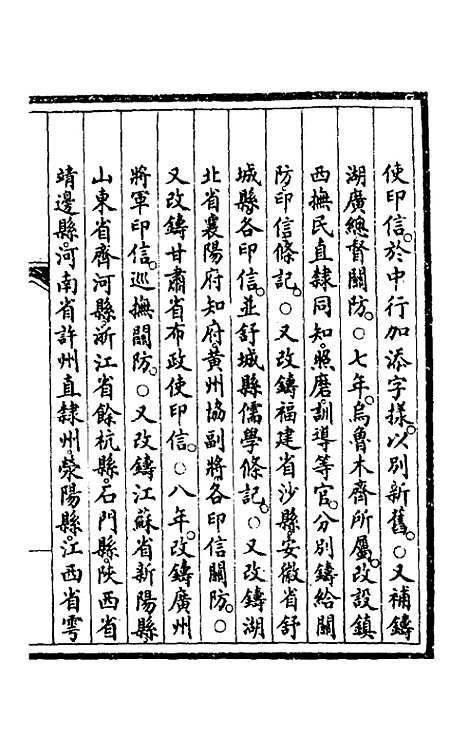 使印信。於中行加添字樣。以別新舊。○又補鑄
湖廣總督關防。○七年。烏魯木齊所屬。改設鎮
西撫民直隸同知。照磨。訓導等官。分別鑄給關
防印信條記。○又改鑄福建省沙縣。安徽省舒
城縣各印信。並舒城縣儒學條記。○又改鑄湖
北省襄陽府知府。黃州協副將各印信關防。○
又改鑄甘肅省布政使印信。○八年。改鑄廣州
將軍印信。巡撫關防。○又改鑄江蘇省新陽縣
山東省齊河縣。浙江省餘杭縣。石門縣。陝西省
靖邊縣。河南省許州直隸州。滎陽縣。江西省雩